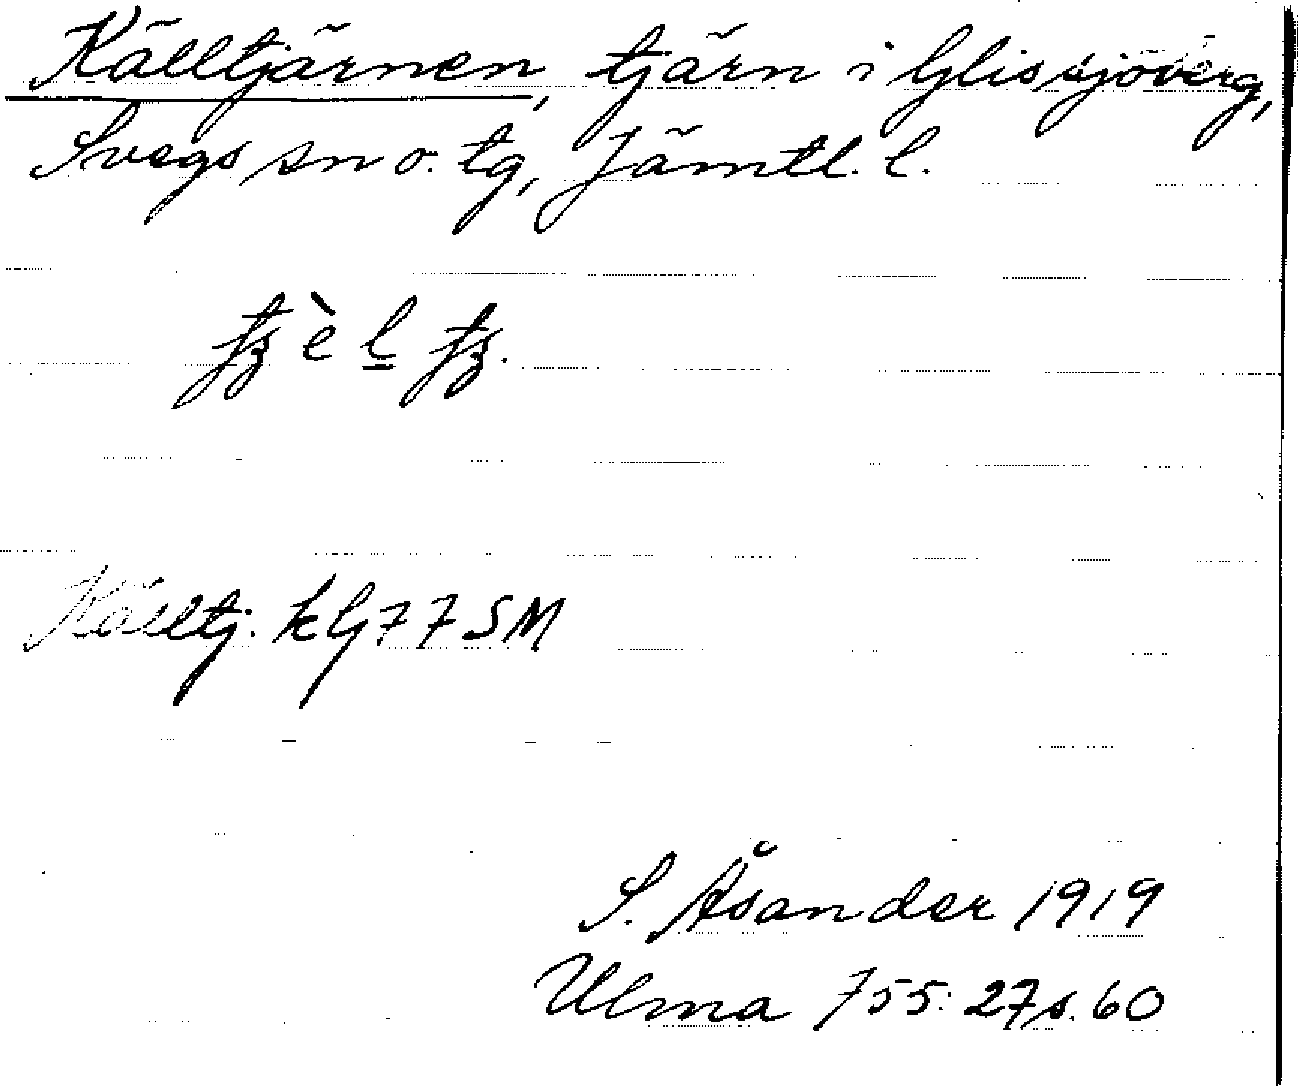 Källtjärnen, tjärn i Glissjöberg,
Svegs sn o. tg, Jämtl. l.
Källtj. kG77SM
S. Åsander 1919
Ulma 755:27 s. 60